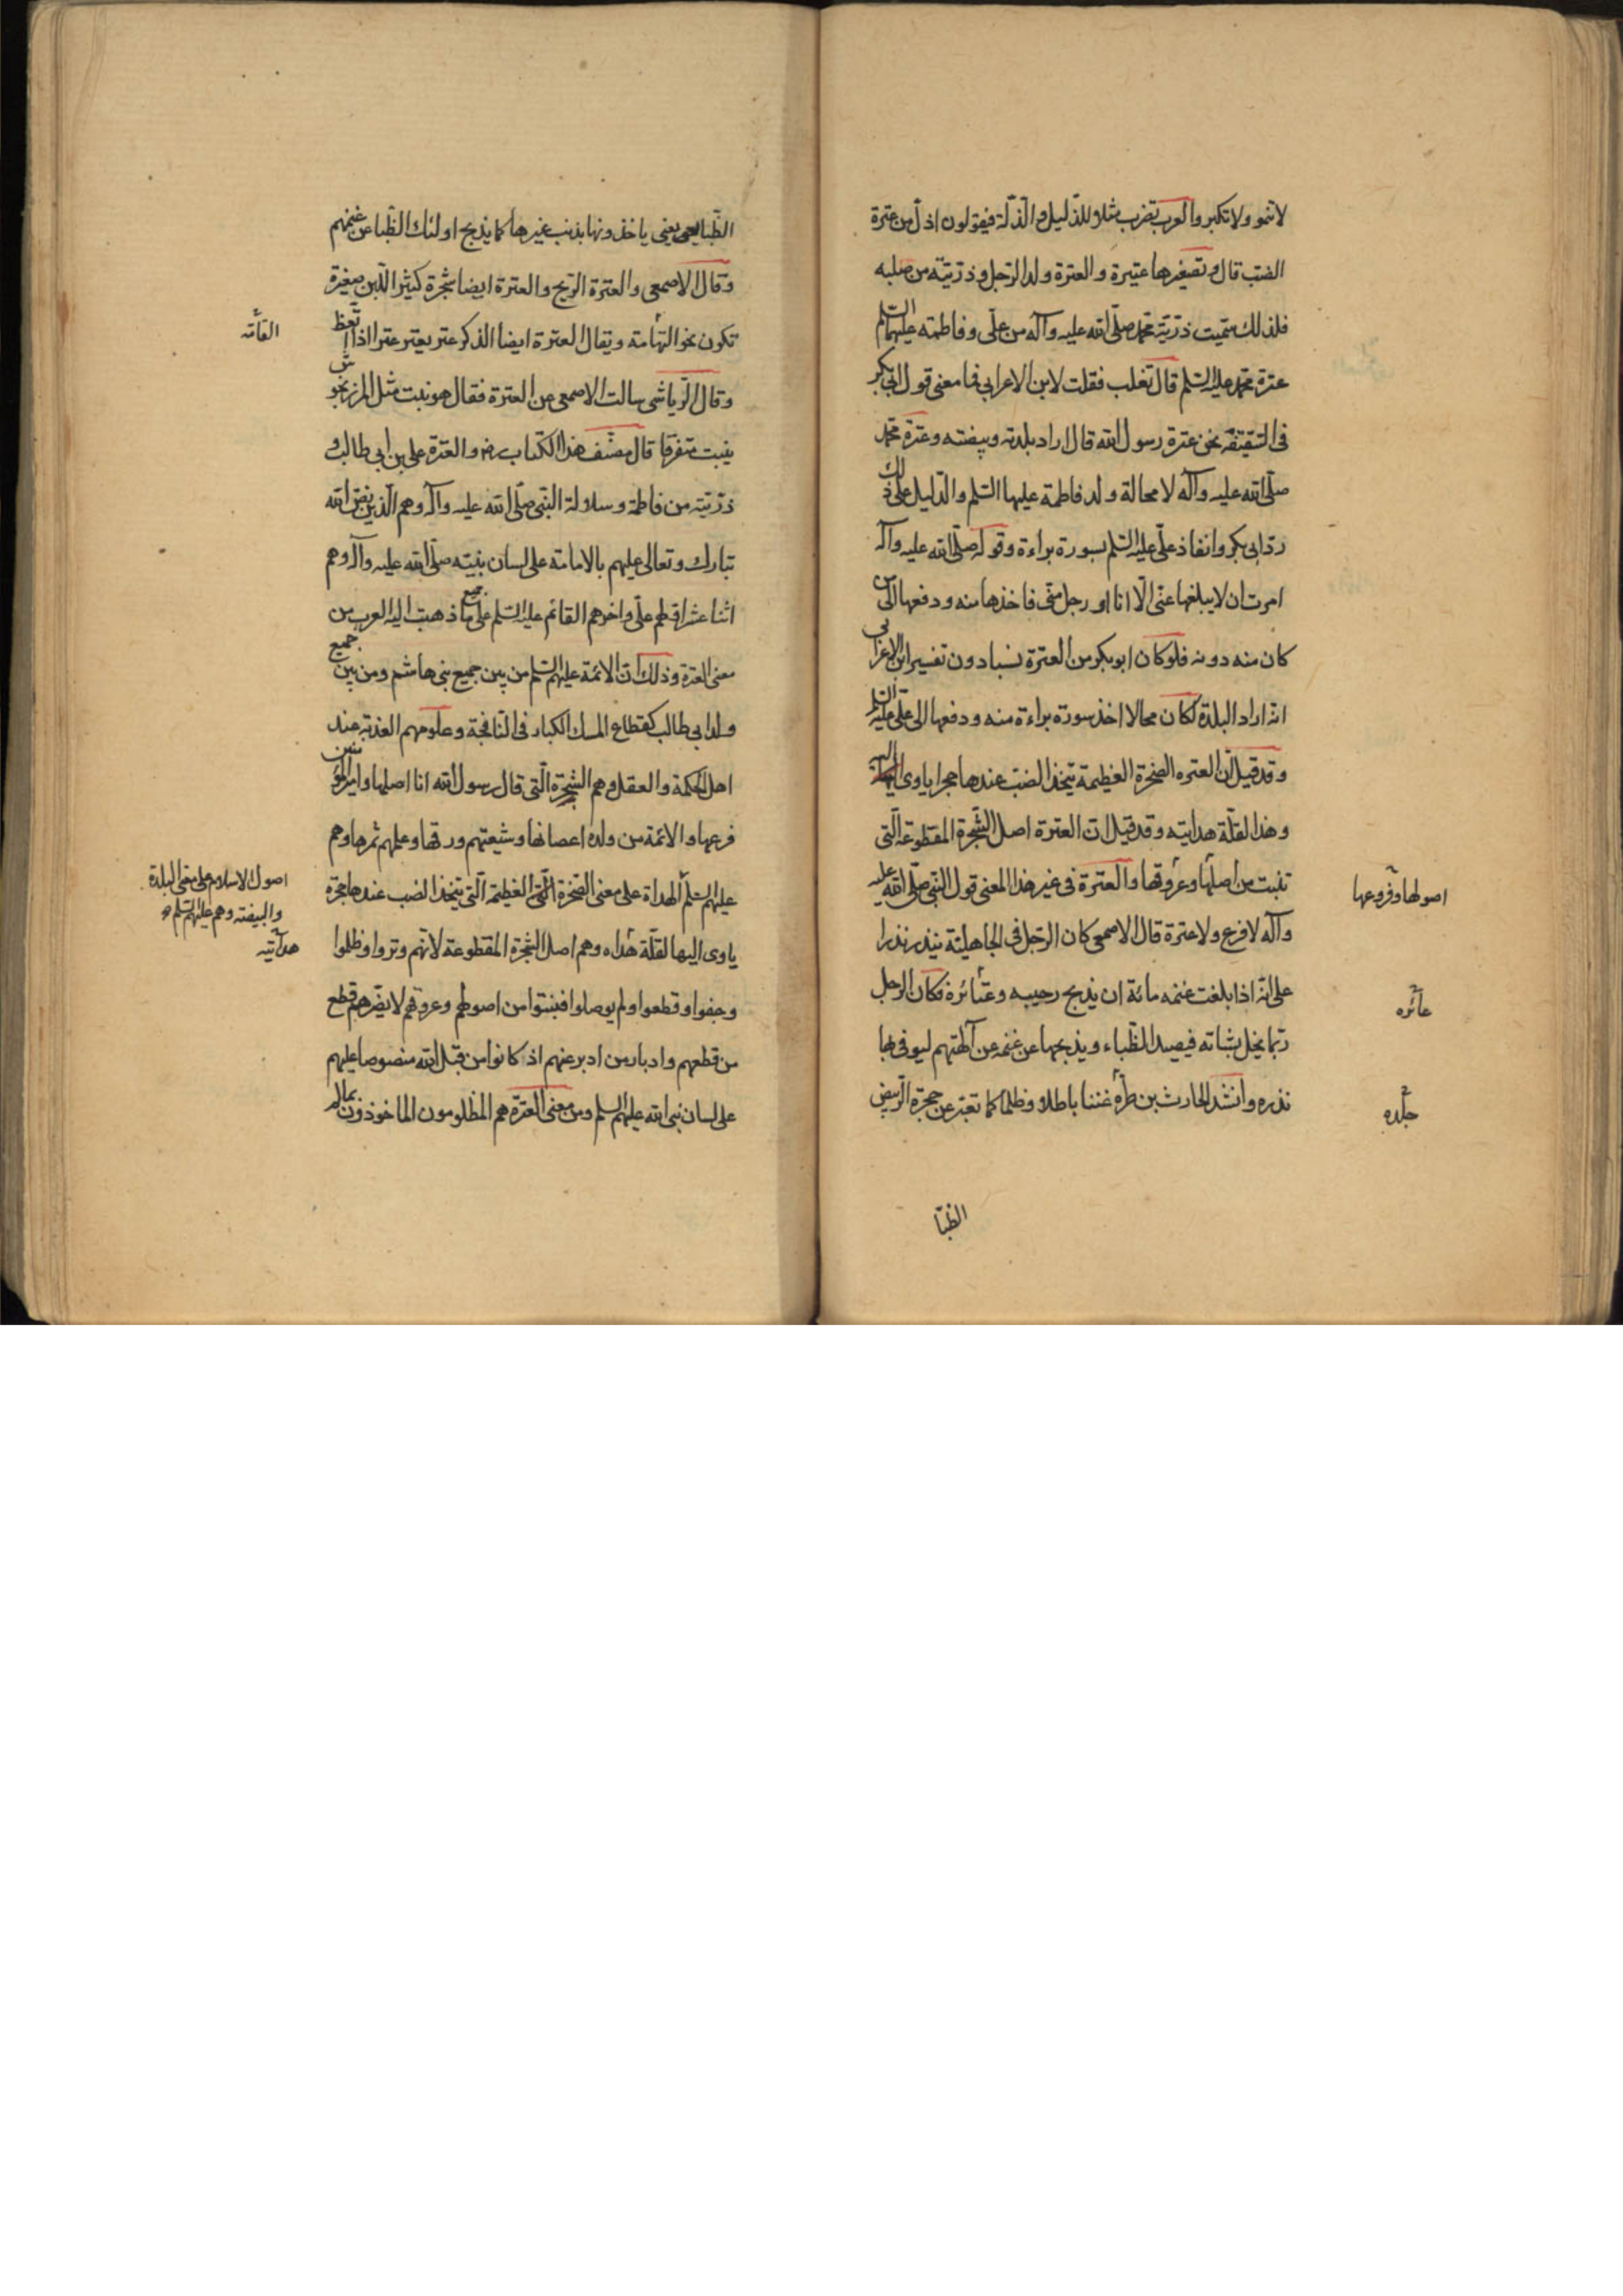 لاتنمو ولاتكبر والعرب تضرب مثلا للذليل والذلة فيقولون اذل من عترة
الضب قال وتصغيرها عتيرة والعترة ولد الرجل وذرّيته من صلبه
فلذلك سمّيت ذرّيّة محمد صلّى الله عليه وآله من علّى وفاطمة عليهما السّلم
عترة محمد عليه السّلم قال تغلب فقلت لابن الاعرابى فما معنى قول ابى بكر
فى السّقيفة نحن عترة رسول الله قال اراد بلدته وبيضته وعترة محمد
صلّى الله عليه وآله لا محالة ولد فاطمة عليها السّلم والدّليل على ذلك
ردّ ابى بكر وانفاذ علّى عليه السّلم بسورة براءة وقوله صلّى الله عليه وآله
امرت ان لايبلغها عنّى الّا انا او رجل منّى فاخذها منه ودفعها الى من
كان منه دونه فلو كان ابوبكر من العترة نسبا دون تفسير ابن الاعرابى
انه اراد البلدة لكان محالا اخذ سورة براءة منه ودفعها الى علّى عليه السّلم
وقد قيل انّ العتره الصخرة العظيمة يتخذ الضبّ عندها حجرا ياوى اليه
وهذا لقلّة هدايته وقد قيل انّ العترة اصل الشّجرة المقطوعة الّتى
تنبت من اصلها وعروقها والعترة فى غير هذا المعنى قول النّبى صلّى الله عليه
اصولها وفروعها
وآله لا فرع ولاعترة قال الاصمعى كان الرّجل فى الجاهليّة ينذر نذرا
على انّه اذا بلغت غنمه مائة ان يذبح رجيبه وعتائرة فكان الرجل
عتائره
ربّما بخل بشاته فيصيد الظّباء ويذبحها عن غنمه عن آلهتهم ليوفى بها
نذره وانشد الحارث بن طرّه عننا باطلا وظلما كما تعتر عن حجرة الرّبيض
حلّده
الظّبا
الظّبا يعنى ياخذونها بذنب غيرها كما يذبح اولئك الظّبا عن غنمهم
وقال الاصمعى والعترة الرّيح والعترة ايضا شجرة كثير اللّبن صغيرة
تكون نحو التّهامة ويقال العترة ايضا الذكر عتر يعتر عترا اذا نعظ
القامّة
وقال الرّياشى سالت الاصمعى عن العترة فقال هو نبت مثل المرزنجوش
ينبت متفرقا قال مصنّف هذا الكتاب رض والعترة على بن ابى طالب و
ذرّيّته من فاطمة وسلالة النّبى صلّى الله عليه وآله وهم الّذين نصّ الله
تبارك وتعالى عليهم بالامامة على لسان نبيّه صلّى الله عليه وآله وهم
اثنا عشر اوّلهم علّى واخرهم القائم عليه السّلم على جميع ما ذهبت اليه العرب من
معنى العترة وذلك انّ الائمّة عليهم السّلم من بين جميع بنى هاشم ومن بين جميع
ولد ابى طالب كقطاع المسك الكبار فى النّافجة وعلومهم العذبة عند
اهل الحكمة والعقل وهم الشّجرة الّتى قال رسول الله انا اصلها وامير المؤمنين
فرعها والائمة من ولده اغصانها وشيعتهم ورقها وعلمهم ثمرها وهم
عليهم السّلم الهداة على معنى الصّخرة العظيمة الّتى يتخذ الضب عندها حجرة
اصول الاسلام على معنى البلدة
والبيضة وهم عليهم السّلم
ياوى اليها لقلّة هداه وهم اصل الشّجرة المقطوعة لانّهم وتروا وظلموا
هدايّته
وجفوا وقطعوا ولم يوصلوا فنبتوا من اصولهم وعروقهم لايضرّهم قطع
من قطعهم وادبار من ادبر عنهم اذ كانوا من قبل الله منصوصا عليهم
على لسان نبى الله عليهم السلم ومن معنى العترة هم المظلومون الماخوذون بمالم